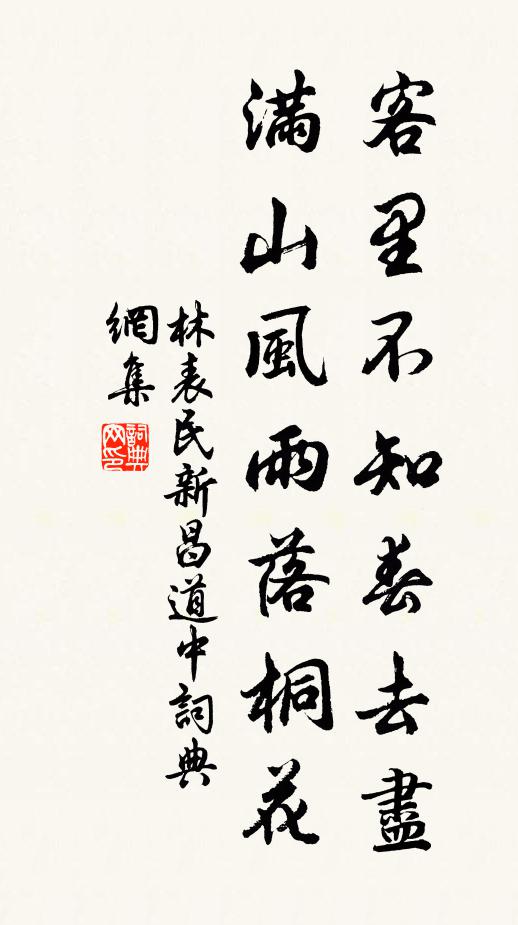 客里不知春去盡
滿山風雨落桐花
林表民新昌道中詞典
網集
詞典
网印